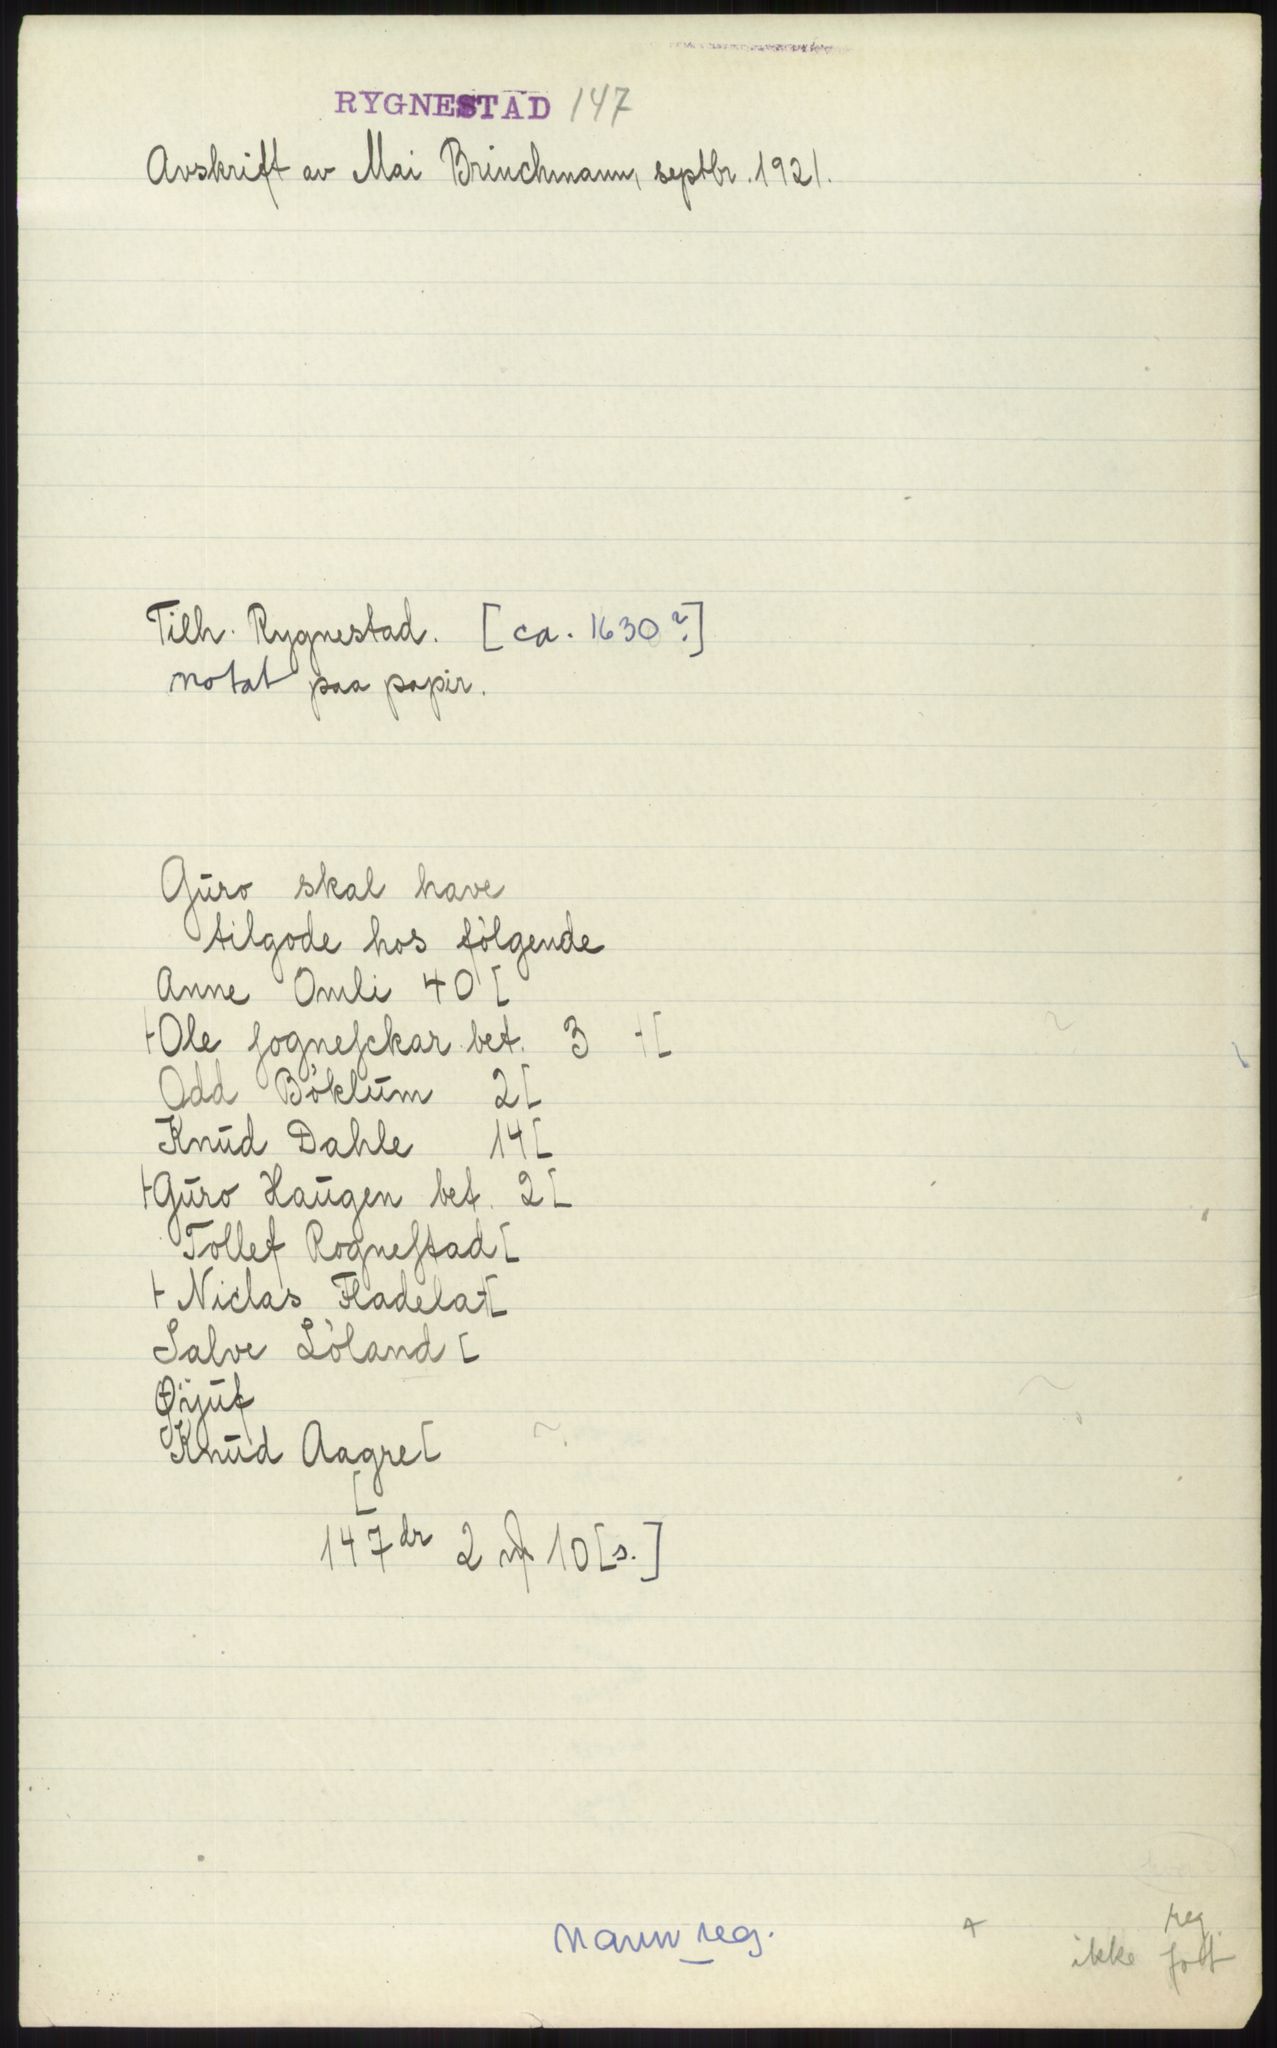 RYGNESTAD 147
Avskrift av Mai Brinchmann, septbr. 1921.
Tilh. Rygnestad. [ca. 1630?]
notat paa papir.
Gūro skal have
tilgode hos følgende
Anne Omli 40 [
+Ole Sogneſckar bet. 3 +[
Odd Bøklūm 2[
Knūd Dahle 14[
+Gūro Haūgen bet. 2[
Tollef Rogneſtad [
+ Niclas Fladela+[
Salve Løland [
Knūd Aagre[
[
147 dr 2 10[s.]
navn reg.
reg.
ikke